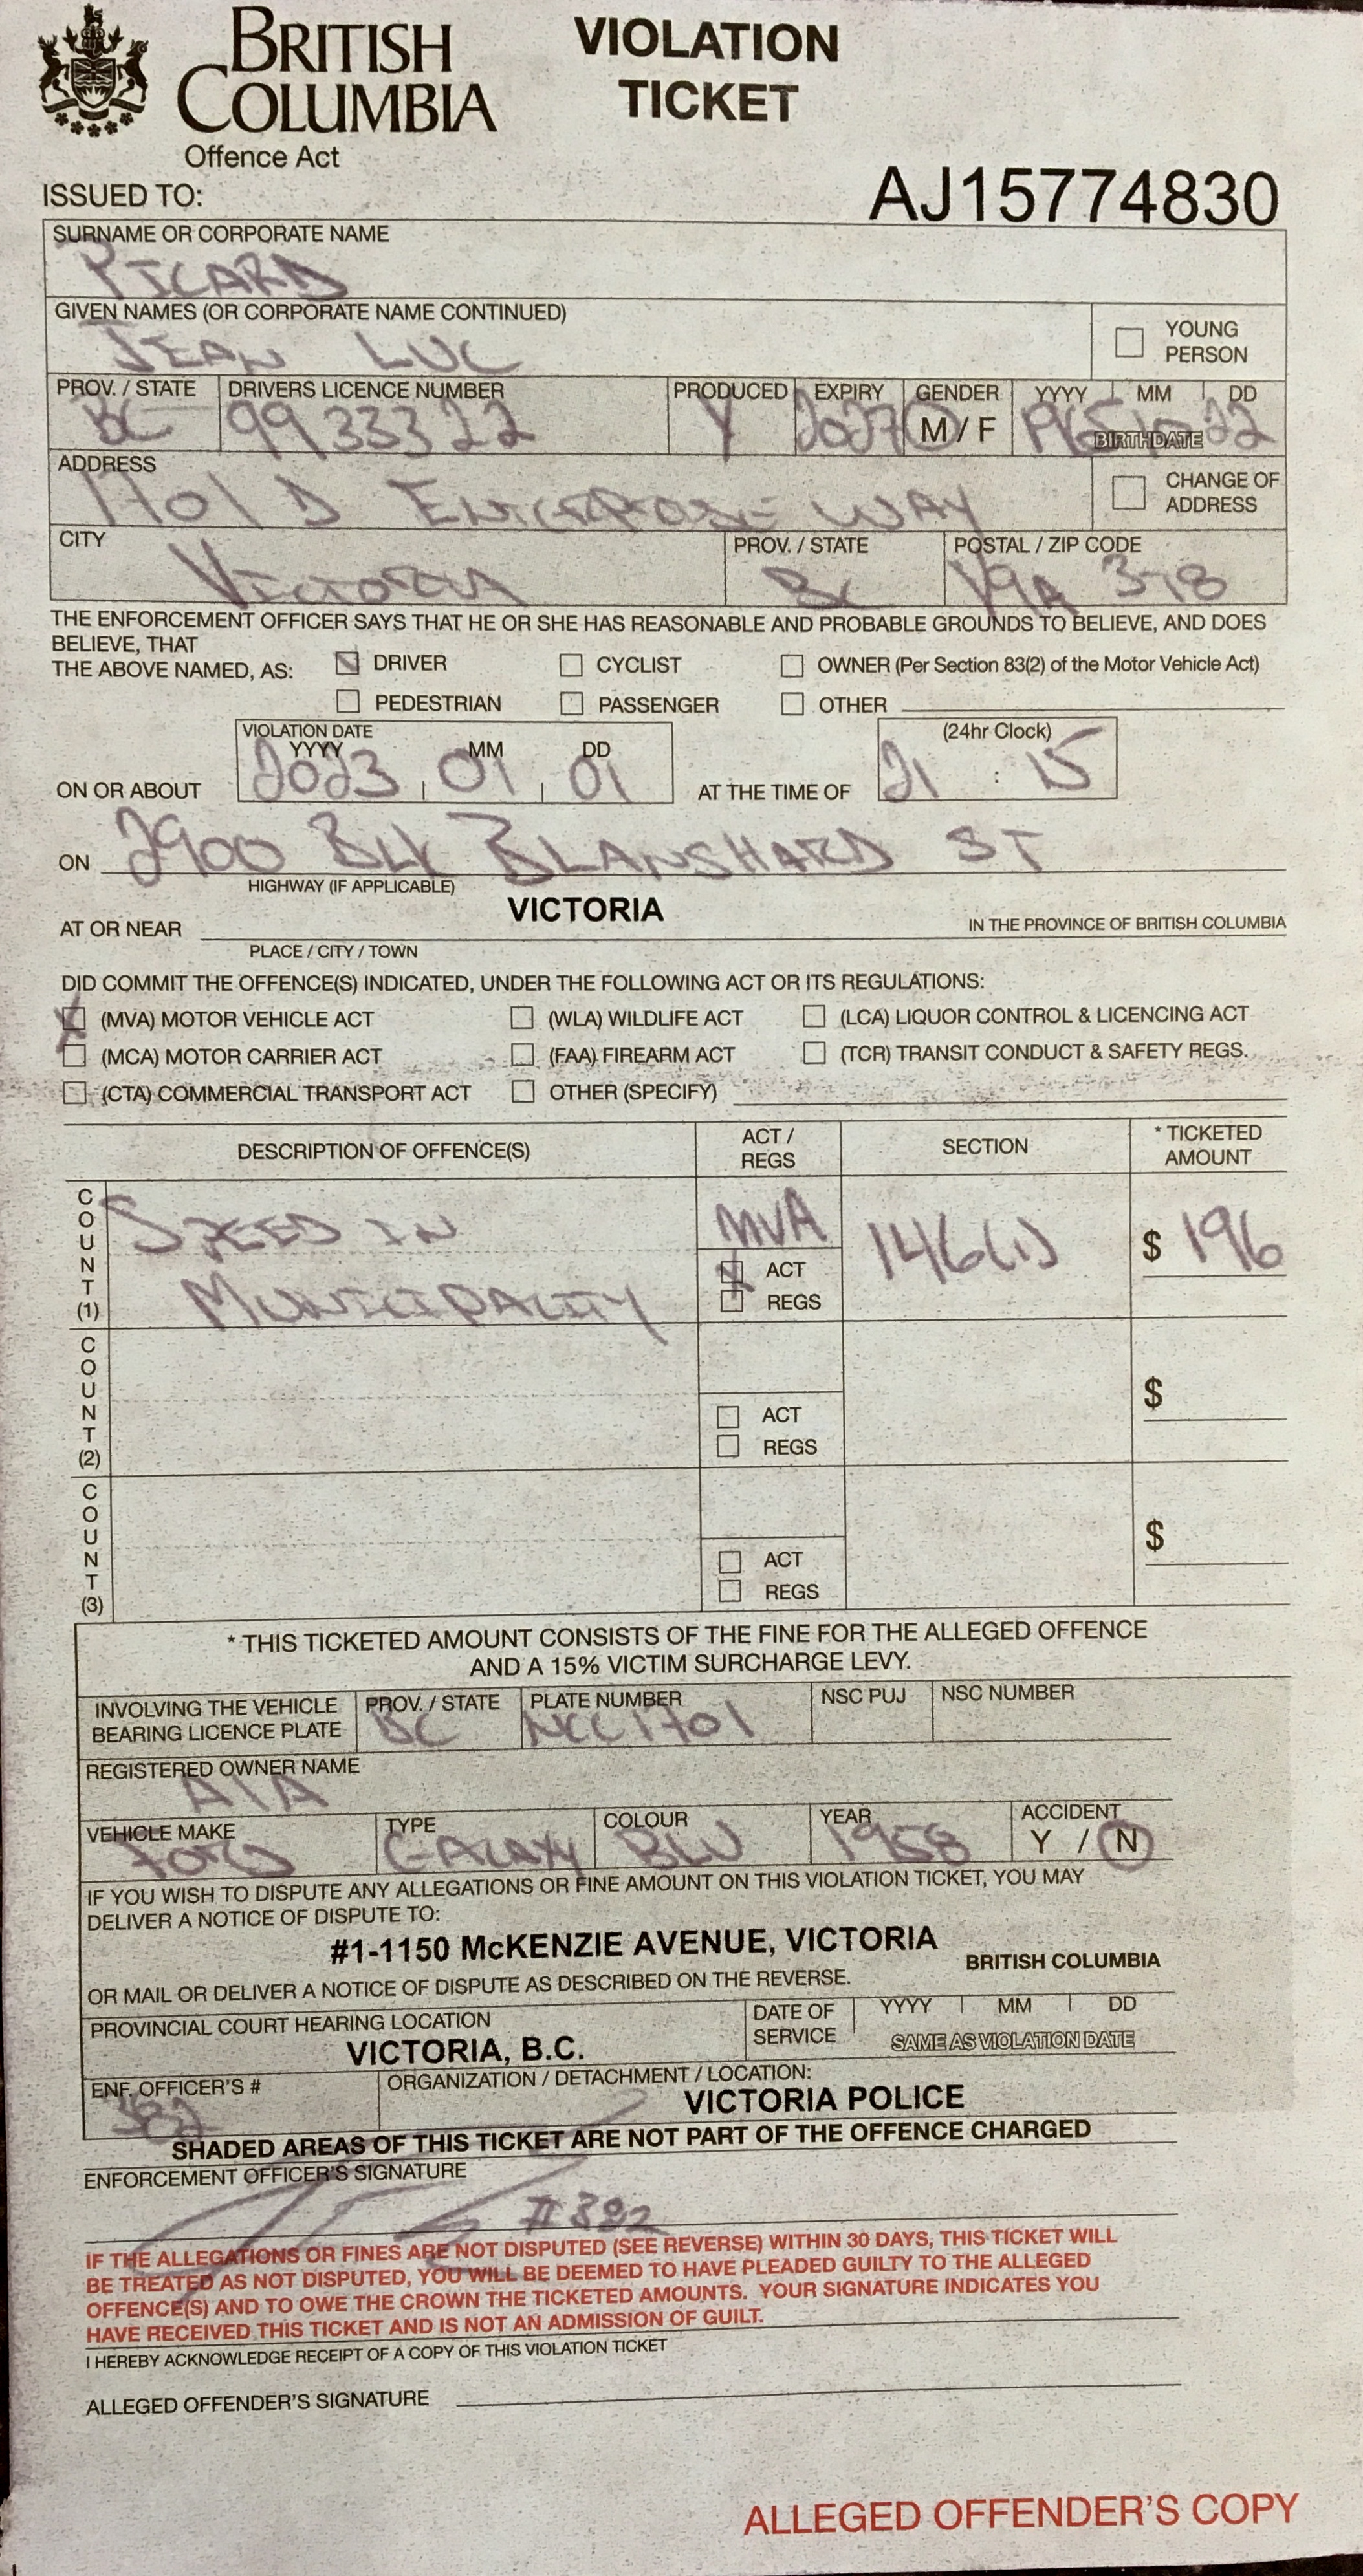 BRITISH COLUMBIA
Offence Act
VIOLATION TICKET
ISSUED TO:
AJ15774830
SURNAME OR CORPORATE NAME
PICARD
GIVEN NAMES (OR CORPORATE NAME CONTINUED)
JEAN LUC
YOUNG PERSON
PROV. / STATE DRIVERS LICENCE NUMBER PRODUCED EXPIRY GENDER YYYY MM DD
BC 9933322 Y 2027 M / F 22
BIRTHDATE
ADDRESS
1701 D ENTERPRISE WAY
CHANGE OF ADDRESS
CITY PROV. / STATE POSTAL / ZIP CODE
VICTORIA BC V9A
THE ENFORCEMENT OFFICER SAYS THAT HE OR SHE HAS REASONABLE AND PROBABLE GROUNDS TO BELIEVE, AND DOES
BELIEVE, THAT
THE ABOVE NAMED, AS: DRIVER CYCLIST OWNER (Per Section 83(2) of the Motor Vehicle Act)
PEDESTRIAN PASSENGER OTHER
VIOLATION DATE (24hr Clock)
YYYY MM DD
ON OR ABOUT 2023 01 01 AT THE TIME OF 21 : 15
ON 2900 BLK BLANSHARD ST
HIGHWAY (IF APPLICABLE)
AT OR NEAR VICTORIA IN THE PROVINCE OF BRITISH COLUMBIA
PLACE / CITY / TOWN
DID COMMIT THE OFFENCE(S) INDICATED, UNDER THE FOLLOWING ACT OR ITS REGULATIONS:
(MVA) MOTOR VEHICLE ACT (WLA) WILDLIFE ACT (LCA) LIQUOR CONTROL & LICENCING ACT
(MCA) MOTOR CARRIER ACT (FAA) FIREARM ACT (TCR) TRANSIT CONDUCT & SAFETY REGS.
(CTA) COMMERCIAL TRANSPORT ACT OTHER (SPECIFY)
DESCRIPTION OF OFFENCE(S) ACT / REGS SECTION * TICKETED AMOUNT
COUNT (1) SPEED IN MVA 146(1) $ 196
MUNICIPALITY ACT
REGS
COUNT (2) $
ACT
REGS
COUNT (3) $
ACT
REGS
* THIS TICKETED AMOUNT CONSISTS OF THE FINE FOR THE ALLEGED OFFENCE
AND A 15% VICTIM SURCHARGE LEVY.
INVOLVING THE VEHICLE BEARING LICENCE PLATE PROV. / STATE PLATE NUMBER NSC PUJ NSC NUMBER
BC NCC1701
REGISTERED OWNER NAME
A/A
VEHICLE MAKE TYPE COLOUR YEAR ACCIDENT
FORD GALAXY BLU 1958 Y / N
IF YOU WISH TO DISPUTE ANY ALLEGATIONS OR FINE AMOUNT ON THIS VIOLATION TICKET, YOU MAY
DELIVER A NOTICE OF DISPUTE TO:
#1-1150 McKENZIE AVENUE, VICTORIA BRITISH COLUMBIA
OR MAIL OR DELIVER A NOTICE OF DISPUTE AS DESCRIBED ON THE REVERSE.
PROVINCIAL COURT HEARING LOCATION DATE OF SERVICE YYYY MM DD
VICTORIA, B.C. SAME AS VIOLATION DATE
ENF. OFFICER'S # ORGANIZATION / DETACHMENT / LOCATION:
382 VICTORIA POLICE
SHADED AREAS OF THIS TICKET ARE NOT PART OF THE OFFENCE CHARGED
ENFORCEMENT OFFICER'S SIGNATURE
#382
IF THE ALLEGATIONS OR FINES ARE NOT DISPUTED (SEE REVERSE) WITHIN 30 DAYS, THIS TICKET WILL
BE TREATED AS NOT DISPUTED, YOU WILL BE DEEMED TO HAVE PLEADED GUILTY TO THE ALLEGED
OFFENCE(S) AND TO OWE THE CROWN THE TICKETED AMOUNTS. YOUR SIGNATURE INDICATES YOU
HAVE RECEIVED THIS TICKET AND IS NOT AN ADMISSION OF GUILT.
I HEREBY ACKNOWLEDGE RECEIPT OF A COPY OF THIS VIOLATION TICKET
ALLEGED OFFENDER'S SIGNATURE
ALLEGED OFFENDER'S COPY